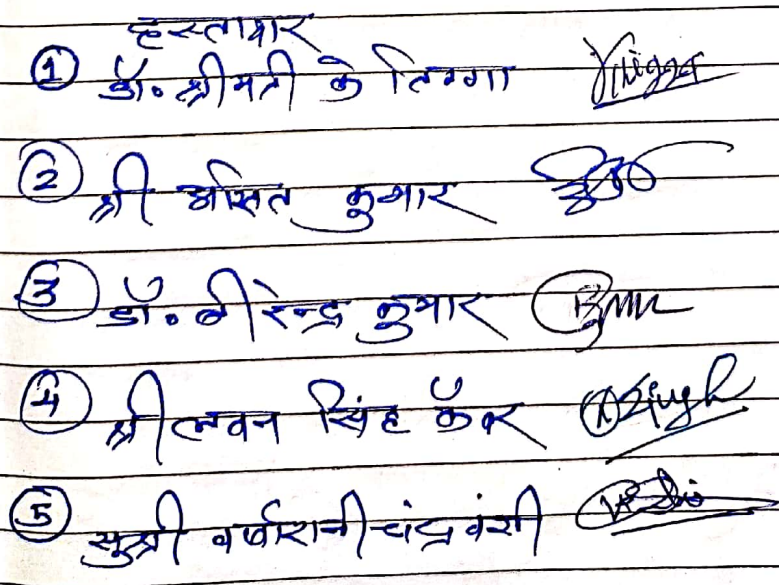 हस्ताक्षर
① डॉ. श्रीमती के तिग्गा
② श्री असित कुमार
③ डॉ. बीरेन्द्र कुमार
④ श्री लवन सिंह कँवर
⑤ सुश्री वर्षारानी चंद्रवंशी